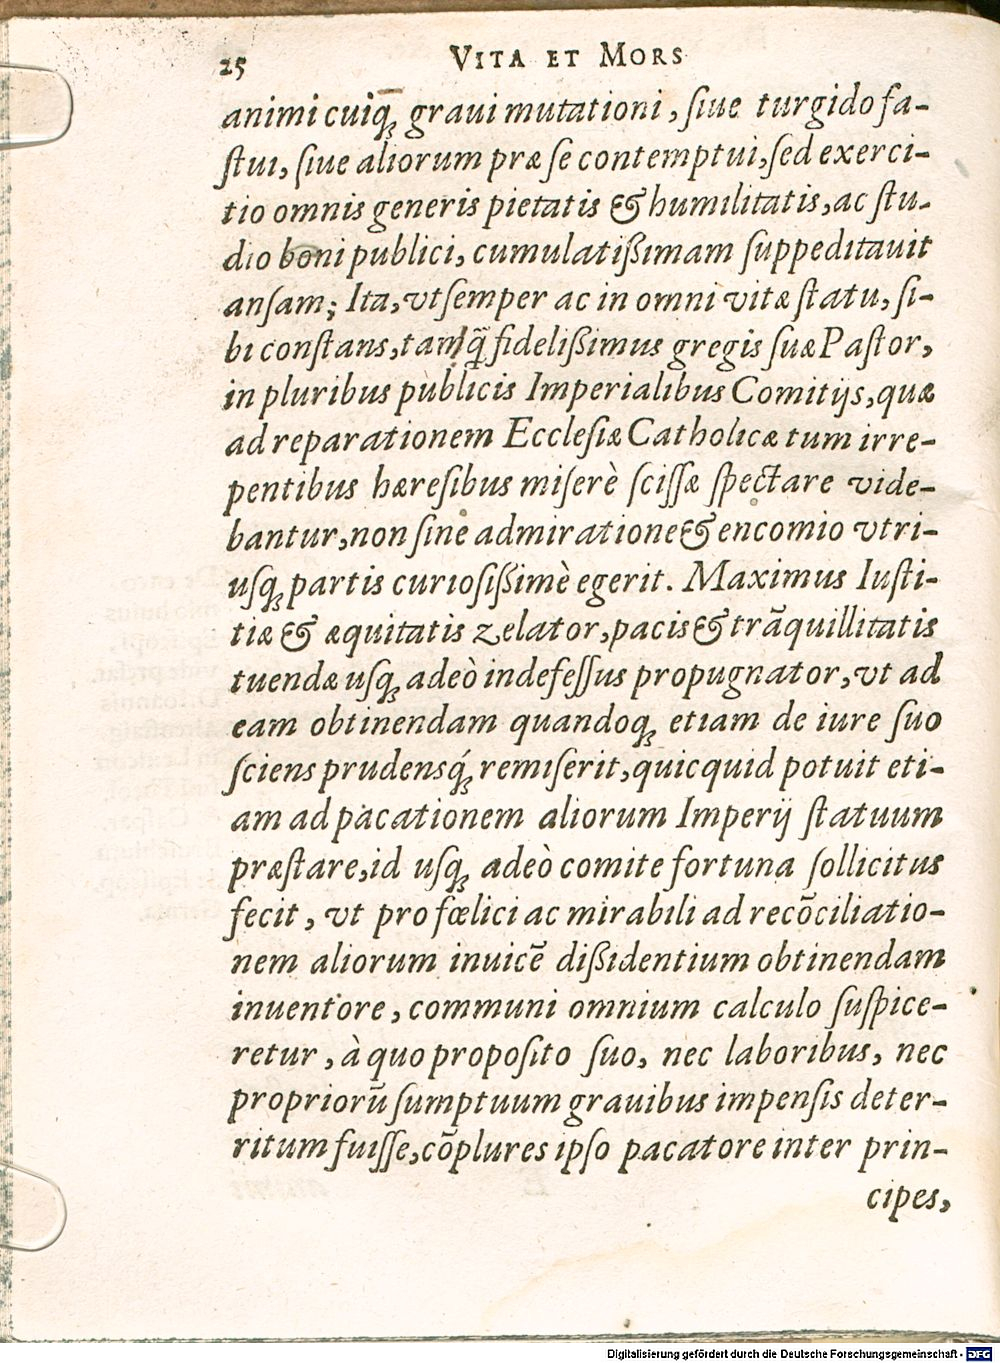 25 VITA ET MORS
animi cuiq́ꝫ graui mutationi, ſiue turgido fa-
ſtui, ſiue aliorum præ ſe contemptui, ſed exerci-
tio omnis generis pietatis & humilitatis, ac ſtu-
dio boni publici, cumulatißimam ſuppeditauit
anſam; Ita, vt ſemper ac in omni vitæ ſtatu, ſi-
bi conſtans, tanq̃ fidelißimus gregis ſuæ Paſtor,
in pluribus publicis Imperialibus Comitijs, quæ
ad reparationem Eccleſiæ Catholicæ tum irre-
pentibus hæreſibus miſerè ſciſſæ ſpectare vide-
bantur, non ſine admiratione & encomio vtri-
uſqꝫ partis curioſißimè egerit. Maximus Iuſti-
tiæ & æquitatis zelator, pacis & trãquillitatis
tuendæ uſqꝫ adeò indefeſſus propugnator, vt ad
eam obtinendam quandoqꝫ etiam de iure ſuo
ſciens prudensq́ꝫ remiſerit, quicquid potuit eti-
am ad pacationem aliorum Imperij ſtatuum
præſtare, id uſqꝫ adeò comite fortuna ſollicitus
fecit, vt pro fœlici ac mirabili ad recõciliatio-
nem aliorum inuicẽ dißidentium obtinendam
inuentore, communi omnium calculo ſuſpice-
retur, à quo propoſito ſuo, nec laboribus, nec
propriorũ ſumptuum grauibus impenſis deter-
ritum fuiſſe, cõplures ipſo pacatore inter prin-
cipes,
Digitalisierung gefördert durch die Deutsche Forschungsgemeinschaft - DFG